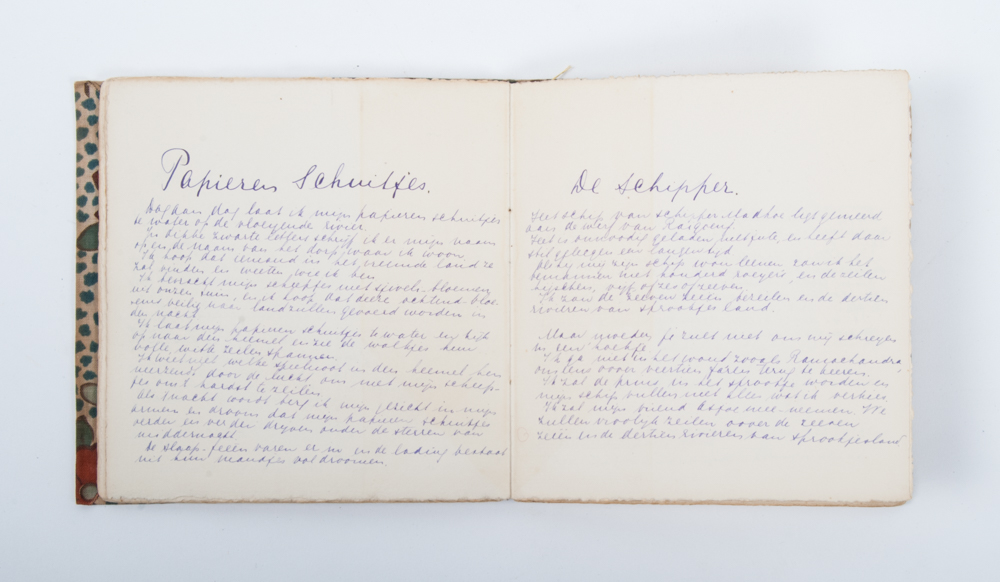 Papieren Schuitjes.
Dag aan dag laat ik mijn papieren schuitjes
te water op de vloeiende rivier.
In dikke zwarte letters schrijf ik er mijn naam
op en de naam van het dorp waar ik woon.
Ik hoop dat iemand in het vreemde land ze
zal vinden en weeten wie ik ben
Ik bevracht mijn scheepjes met bloemen
uit onzen tuin, en ik hoop dat deeze ochtend-bloe-
veilig naar land zullen gevoerd worden in
den nacht.
Ik laat mijn papieren schuitjes te water en kijk
op naar den hemel en zie de wolkjes hun
witte zeilen spannen.
Ik weet niet welke speelnoot in den hemel hen
neerzendt door de lucht om met mijn scheep-
jes om 't hardst te zeilen
Als 't nacht wordt berg ik mijn gezicht in mijn
armen en droom dat mijn papieren schuitjes
verder en verder dryven onder de sterren van
middernacht
De slaap-feeën varen er in en de lading bestaat
uit hun mandjes vol droomen.
De Schipper.
Het schip van schipper Madhoe ligt gemeerd
aan de werf van
Het is onnoodig geladen met jute, en heeft daar
stil gelegen een langen tyd
my zijn schip leenen zou ik het
bemannen met honderd roeyers, en de zeilen
hyschen, vyf of zes of zeeven.
Ik zou de zeeven zeeën bezeilen en de dertien
rivieren van sprookjesland.
Maar moeder, je zult niet om mij schreyen
in een hoekje
Ik ga niet in het woud zooals Ramachandra
om eerst voor veertien jaren terug te keeren.
Ik zal de prins in het sprookje worden en
mijn schip vullen met alles wat ik verkies.
Ik zal mijn vriend mee-neemen. We
zullen vroolyk zeilen over de zeeven
zeeën en de dertien rivieren van sprookjesland